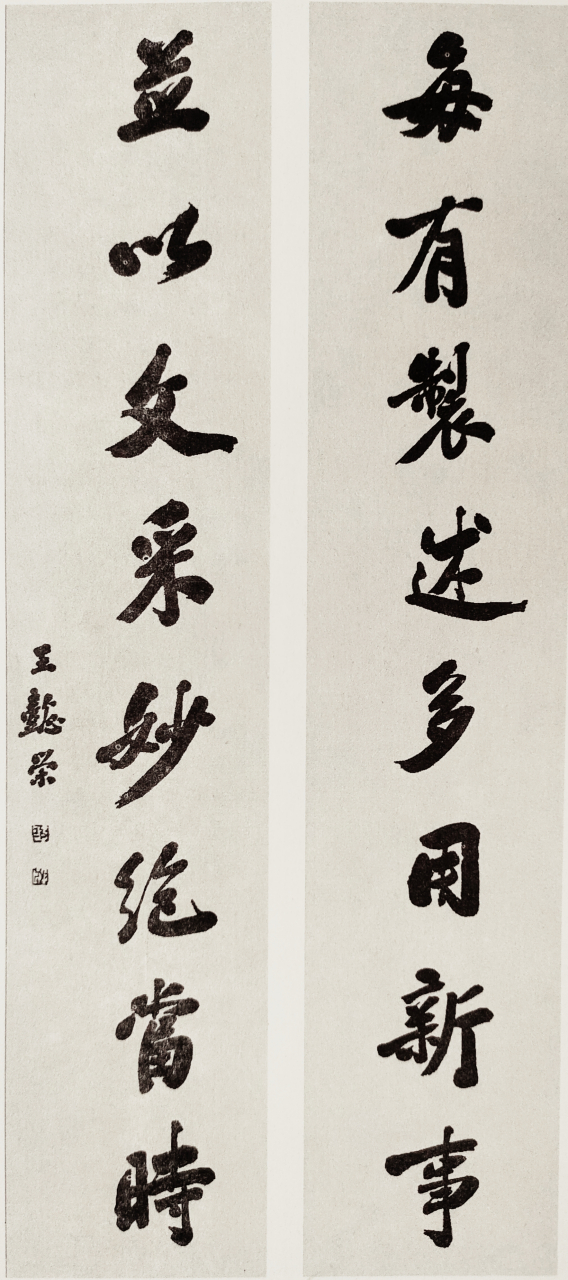 每有製述多用新事
並以文采妙絕當時
王懿榮